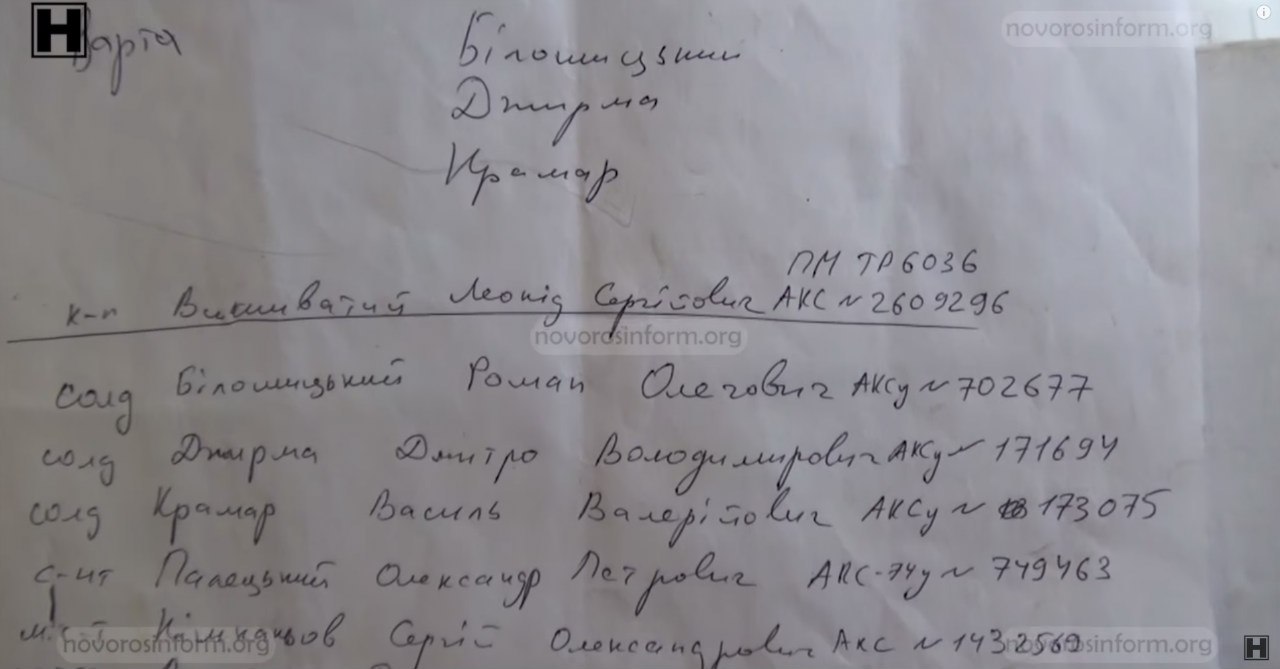 novorosinform.org
Н
Варта
Білошицький
Джирма
Крамар
ПМ ТР6036
к-н Вишиватий Леонід Сергійович АКС №2609296
novorosinform.org
солд Білошицький Роман Олегович АКСу №702677
солд Джирма Дмитро Володимирович АКСу № 171694
солд Крамар Василь Валерійович АКСу № 173075
с-нт Палецький Олександр Петрович АКС-74у № 749463
Сергій Олександрович АКС №1432569
novorosinform.org
novorosinform.org
Н